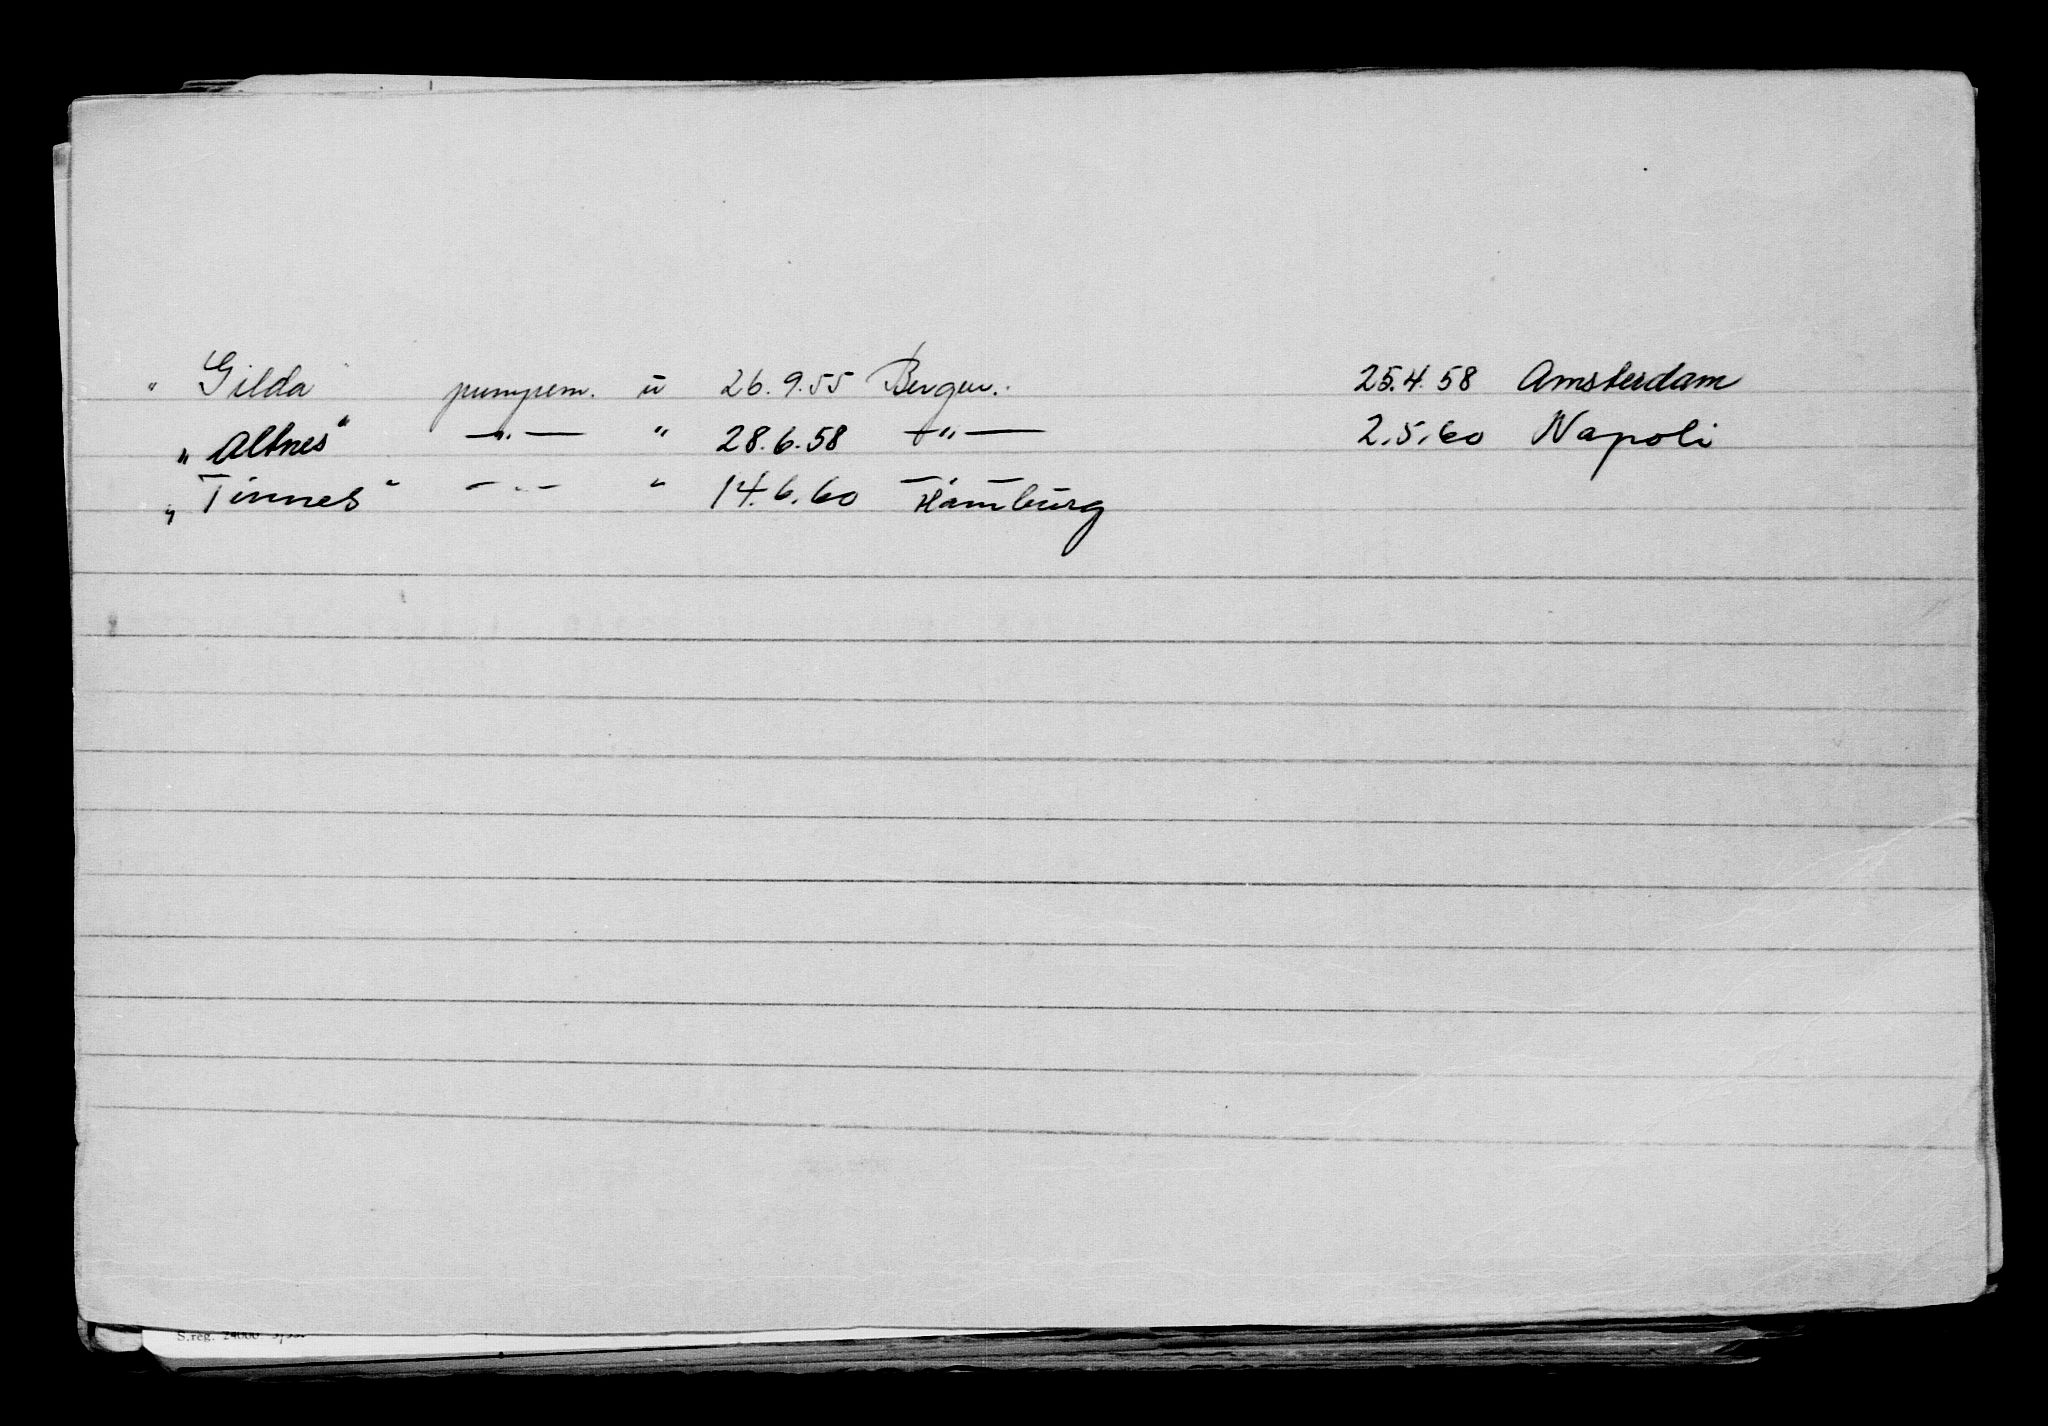 " Gilda " pumpem. u 26.9.55 Bergen. 25.4.58 Amsterdam
" Altnes " —"— " 28.6.58 —"— 2.5.60 Napoli
" Tinnes " —"— " 14.6.60 —"— Hamburg
S.reg. 24000